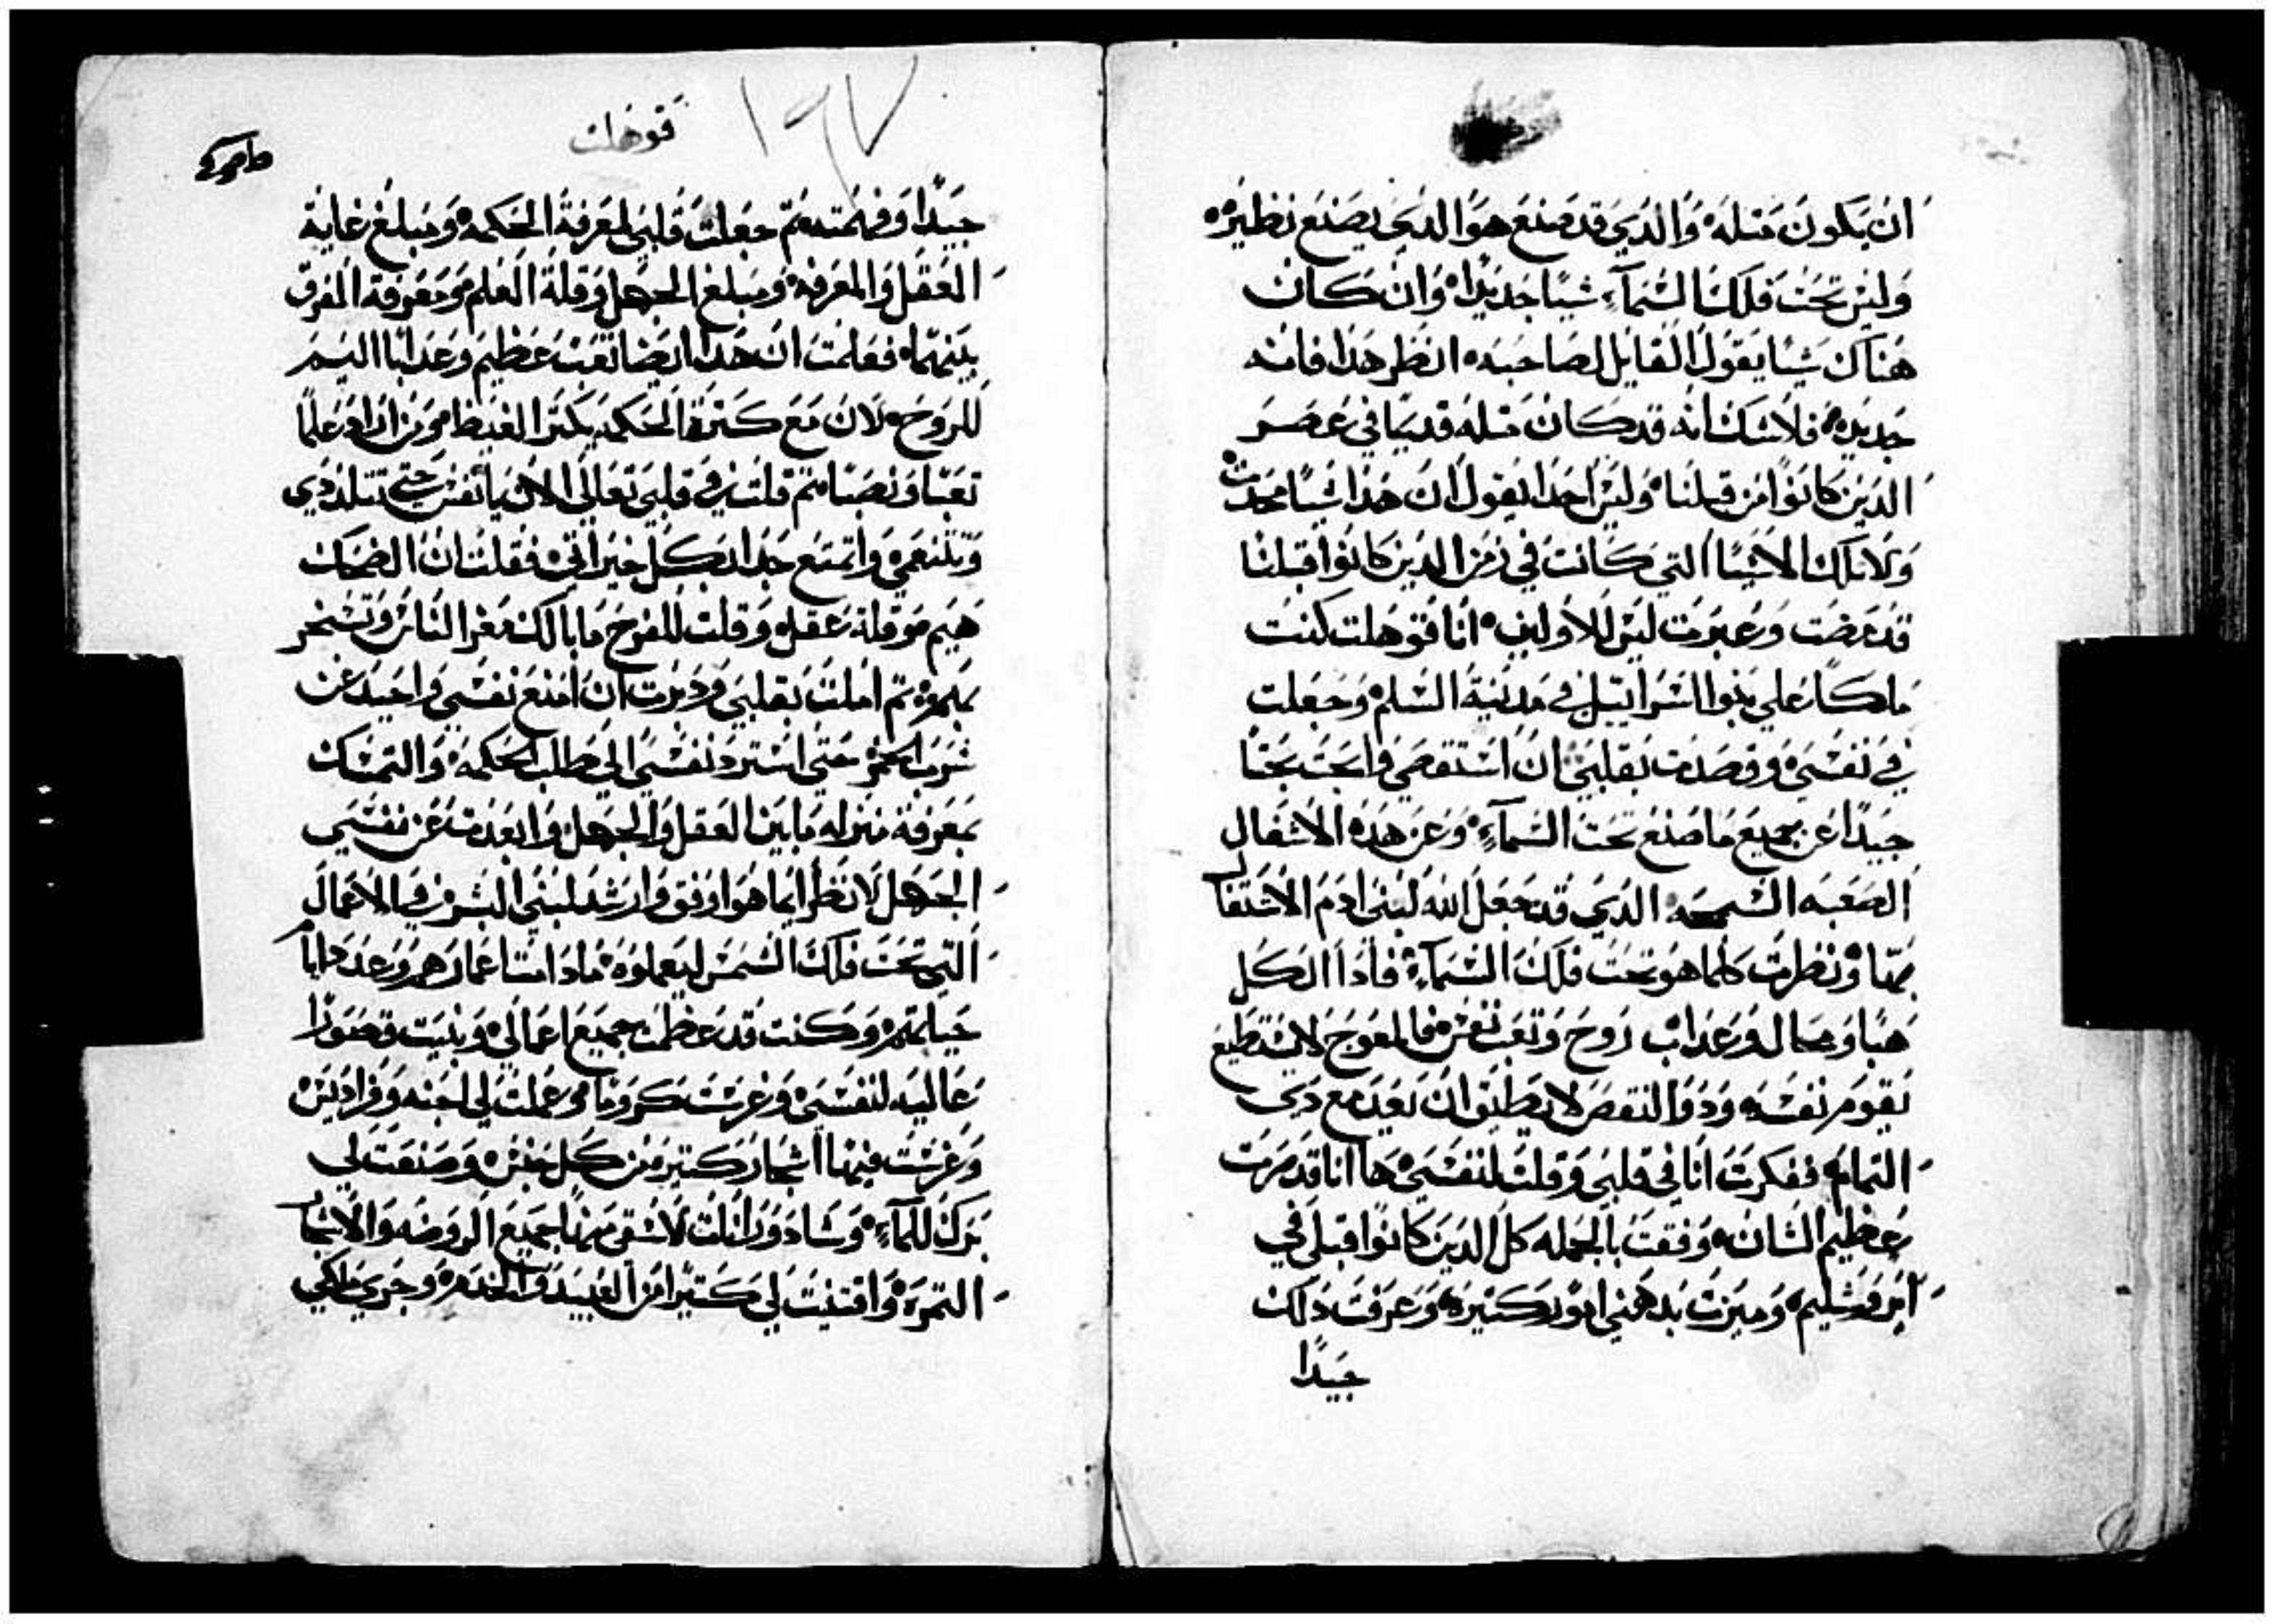 ان يكون مثله والدي قد صنع هو الدي يصنع نظيره
وليس تحت فلك السمآء شيا جديدا وان كان
هناك شيا يقول القايل لصاحبه انظر هدا فانه
جديد فلا شك انه قد كان مثله قديما في عصر
الدين كانوا من قبلنا وليس احدا يقول ان هدا شيا محدث
ولا تلك الاشيا التي كانت في زمن الدين كانوا قبلنا
قد مضت وعبرت ليس للاولين انا قوهلت كنت
ملكا على بنوا اسرائيل في مدينة السلم وجعلت
في نفسي وقصدت بقلبي ان استقصي وابحث بحثا
جيدا عن جميع ما صنع تحت السمآء وعن هده الاشغال
الصعبه السمجه الدي قد جعل الله لبني ادم الاشتغال
بها ونظرت كلما هو تحت فلك السمآء فادا الكل
هبا ومحال وعداب روح وتعب نفس فالمعوج لا يستطيع
يقوم نفسه ودوا النقص لا يطيق ان يعد مع دي
التمام ففكرت انا في قلبي وقلت لنفسي ها انا قد صرت
عظيم الشان وفقت بالجمله كل الدين كانوا قبلي في
ايروشليم وميزت بدهني امور كثيره وعرفت دلك
جيدا
قوهلت
١٩٧
جيدا وفهمته ثم جعلت قلبي لمعرفة الحكمه ومبلغ غاية
العقل والمعرفه ومبلغ الجهل وقلة العلم ومعرفة الفرق
بينهما فعلمت ان هدا ايضا تعب عظيم وعدابا اليم
للروح لان مع كثرة الحكمه يكثر الغيظ ومن ازاد علما
تعبا ونصبا ثم قلت في قلبي تعالي الان يا نفس حتي تتلددي
وتتنعمي واتمتع جدا بكل خيراتي فقلت ان الضحك
هيم وقلة عقل وقلت للفرح ما بالك تغر الناس وتسخر
بهم ثم املت بقلبي ودبرت ان امنع نفسي واحيد عن
شرب الخمر حتى استرد نفسي الى طلب الحكمه والتمسك
بمعرفة منزله ما بين العقل والجهل وابعدت عن نفسي
الجهل لانظر ايما هو اوفق وارشد لبني البشر في الاعمال
التي تحت فلك الشمس ليعملوه مادامت اعمارهم وعدد ايام
حياتهم وكنت قد عظمت جميع اعمالي وبنيت قصورا
عاليه لنفسي وغرست كروما وعملت لي اجنه وفراديس
وغرست فيها اشجار كتير من كل جنس وصنعت لي
برك للمآء وشادورانات لاسقي منها جميع الروضه والاشجار
التمره واقتنيت لي كتيرا من العبيد والخدم وجري ملكي